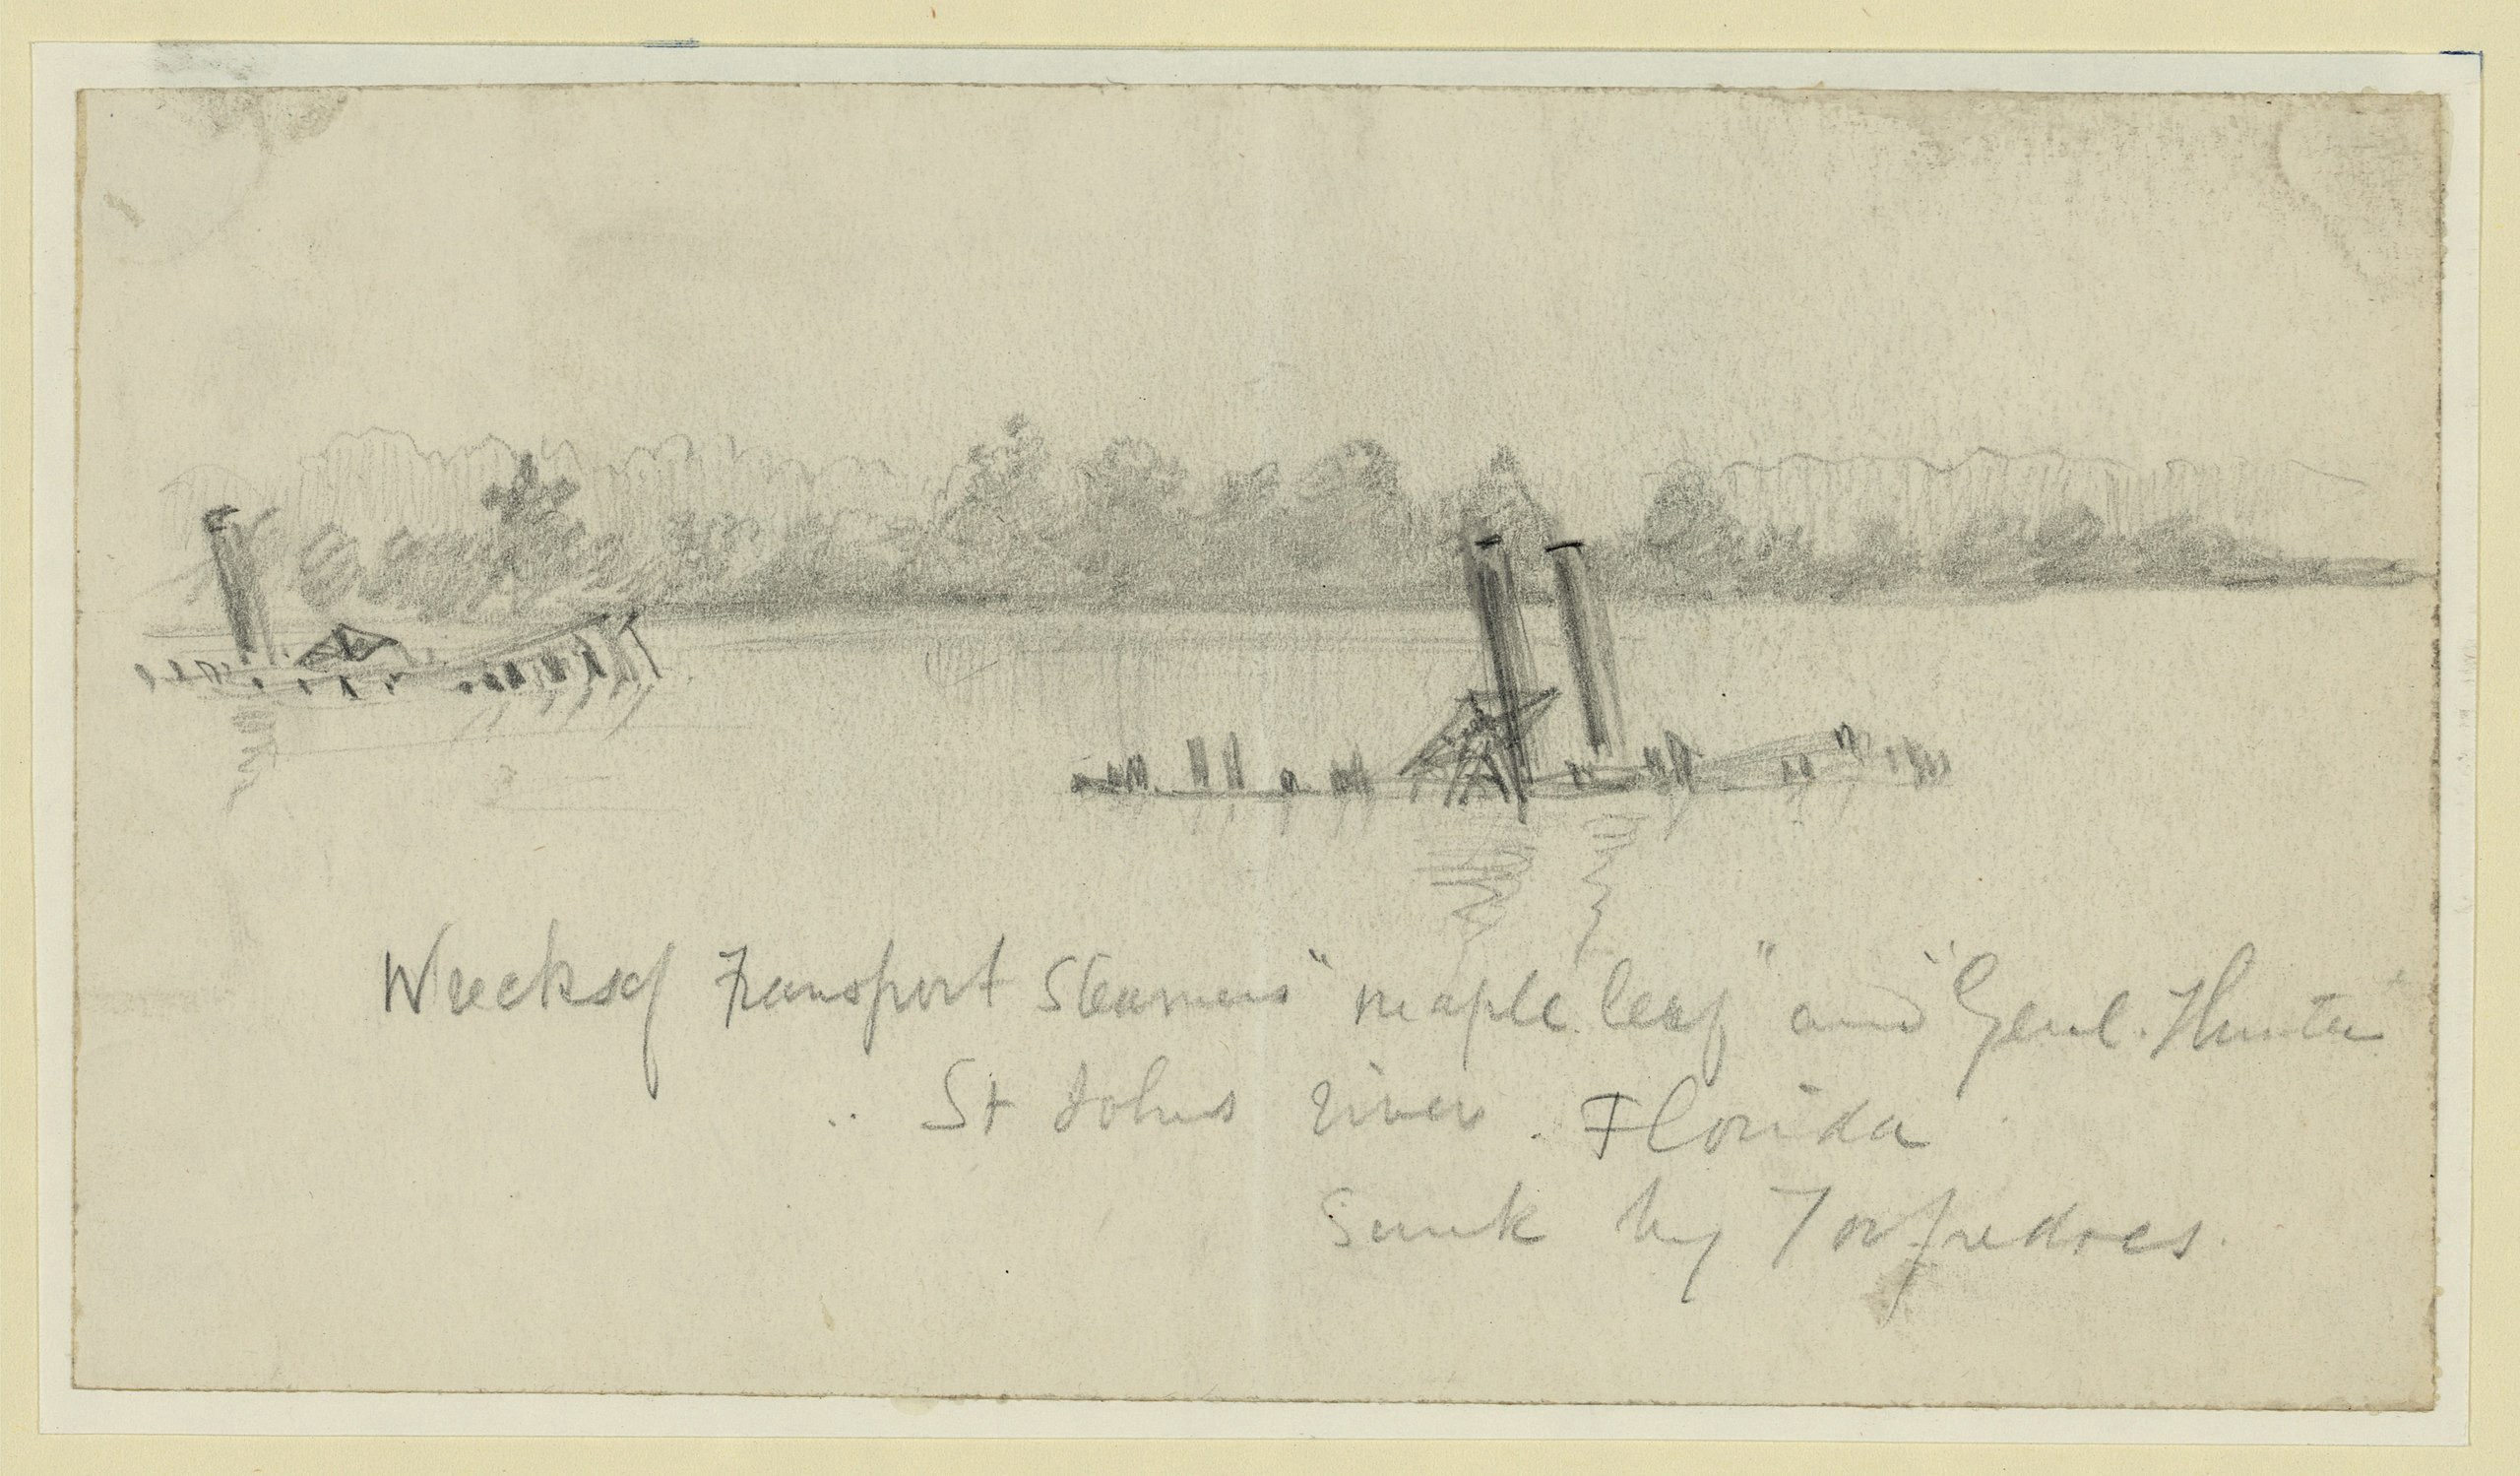 Wrecks of Transport Steamers "maple leaf" and "Genl. Hunter"
St Johns river. Florida
Sunk by Torpedoes.